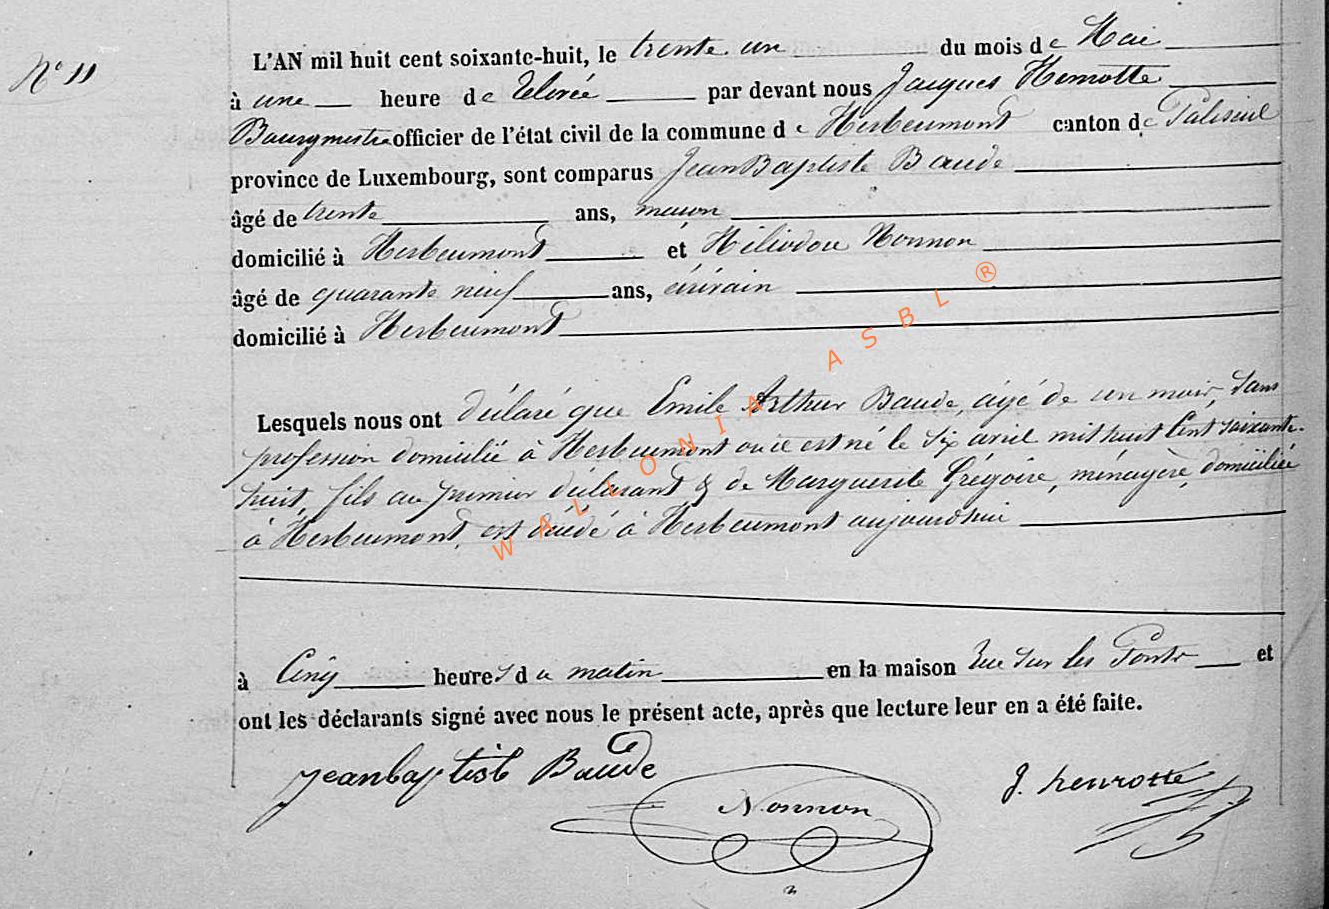 N° 11
L'AN mil huit cent soixante-huit, le trente un du mois de Mai
à une heure de relevée par devant nous Jacques Henrotte
Bourgmestre officier de l'état civil de la commune de Herbeumont canton de Paliseul
province de Luxembourg, sont comparus Jean Baptiste Baude
âgé de trente ans, maçon
domicilié à Herbeumont et Héliodore Nonnon
âgé de quarante neuf ans, écrivain
domicilié à Herbeumont
Lesquels nous ont déclaré que Emile Arthur Baude, âgé de un mois, sans
profession domicilié à Herbeumont où il est né le six avril mil huit Cent soixante-
huit, fils au premier déclarant & de Marguerite Grégoire, ménagère, domiciliée
à Herbeumont, est décédé à Herbeumont aujourdhui
à Cinq heures du matin en la maison rue sur les Ponts et
ont les déclarants signé avec nous le présent acte, après que lecture leur en a été faite.
jeanbaptist Baude
Nonnon
J. henrotte
WALLONIA ASBL ®